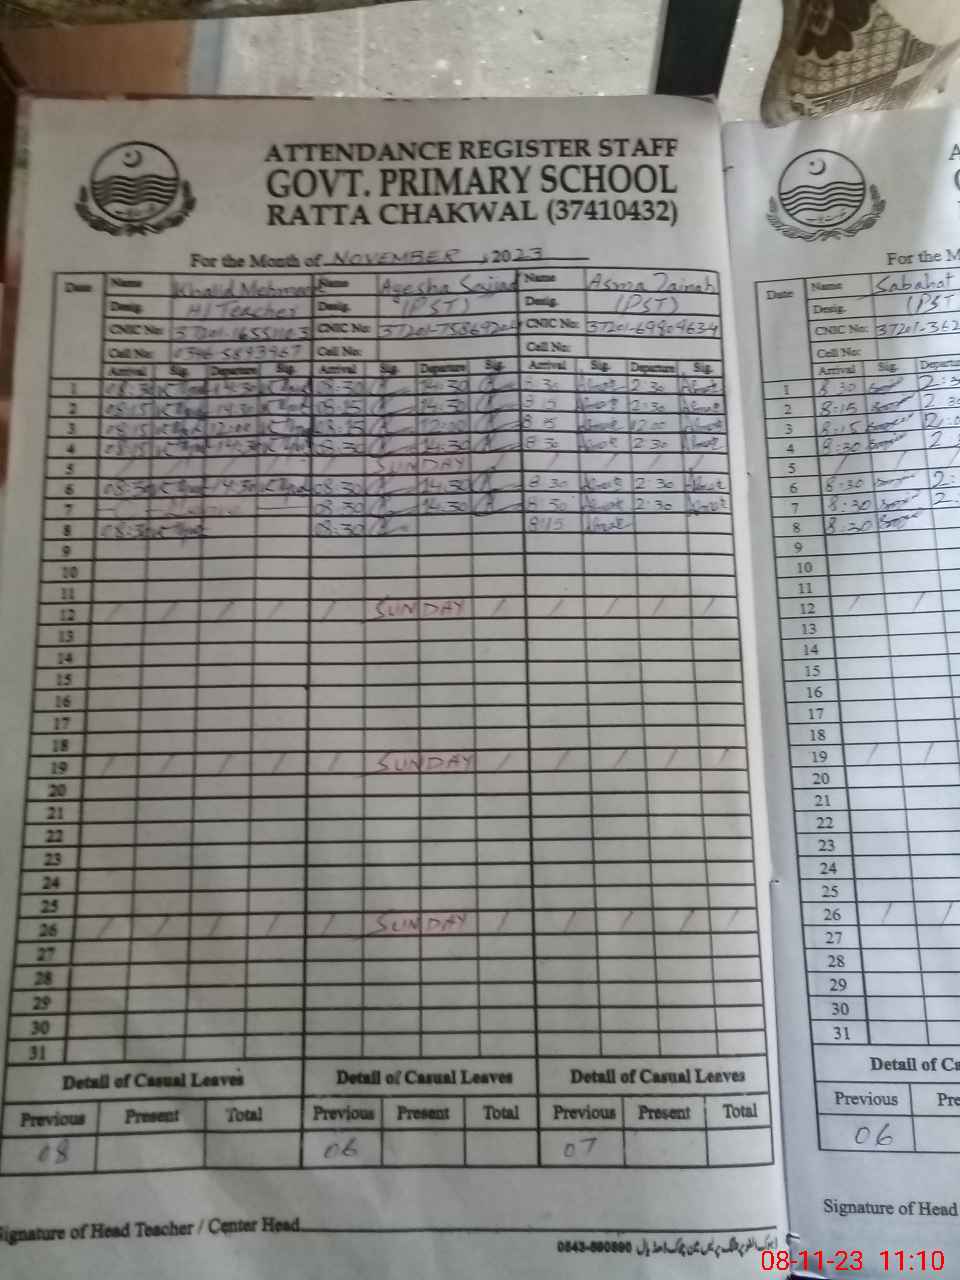 ATTENDANCE REGISTER STAFF
GOVT. PRIMARY SCHOOL
RATTA CHAKWAL (37410432)
For the Month of NOVEMBER, 2023
Date Name Khalid Mehmood Name Ayesha Sajjad Name Asma Zainab
Desig. H/Teacher Desig. (PST) Desig. (PST)
CNIC No: CNIC No: CNIC No: 37201-6980463-4
Cell No: 0346-5893967 Cell No: Cell No:
Arrival Sig. Departure Sig. Arrival Sig. Departure Sig. Arrival Sig. Departure Sig.
1 08:30 14:30 08:30 14:30 8:30 2:30
2 08:15 14:30 08:15 14:30 8:15 2:30
3 08:15 12:00 08:15 12:00 8:15 12:00
4 08:15 14:30 08:30 14:30 8:30 2:30
5 SUNDAY
6 08:30 14:30 08:30 14:30 8:30 2:30
7 08:30 14:30 8:30 2:30
8 08:30 08:30 8:15
9
10
11
12 SUNDAY
13
14
15
16
17
18
19 SUNDAY
20
21
22
23
24
25
26 SUNDAY
27
28
29
30
31
Detail of Casual Leaves Detail of Casual Leaves Detail of Casual Leaves
Previous Present Total Previous Present Total Previous Present Total
08 06 07
Signature of Head Teacher / Center Head
0543-590590
For the M
Date Name Sabahat
Desig. (PST
CNIC No: 37201-362
Cell No:
Arrival Sig. Departure
1 8:30 2:30
2 8:15 2:30
3 8:15 12:0
4 8:30 2
5
6 8:30 2:
7 8:30 2
8 8:30
9
10
11
12
13
14
15
16
17
18
19
20
21
22
23
24
25
26
27
28
29
30
31
Detail of Ca
Previous Pre
06
Signature of Head
08-11-23 11:10